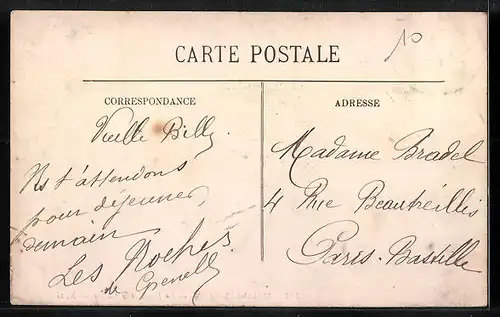 10
CARTE POSTALE
CORRESPONDANCE
Vieille Billy.
Ns t'attendons
pour déjeuner,
demain
Les Roches
de Grenelle
ADRESSE
Madame Bradel
4 Rue Beautreillis
Paris-Bastille